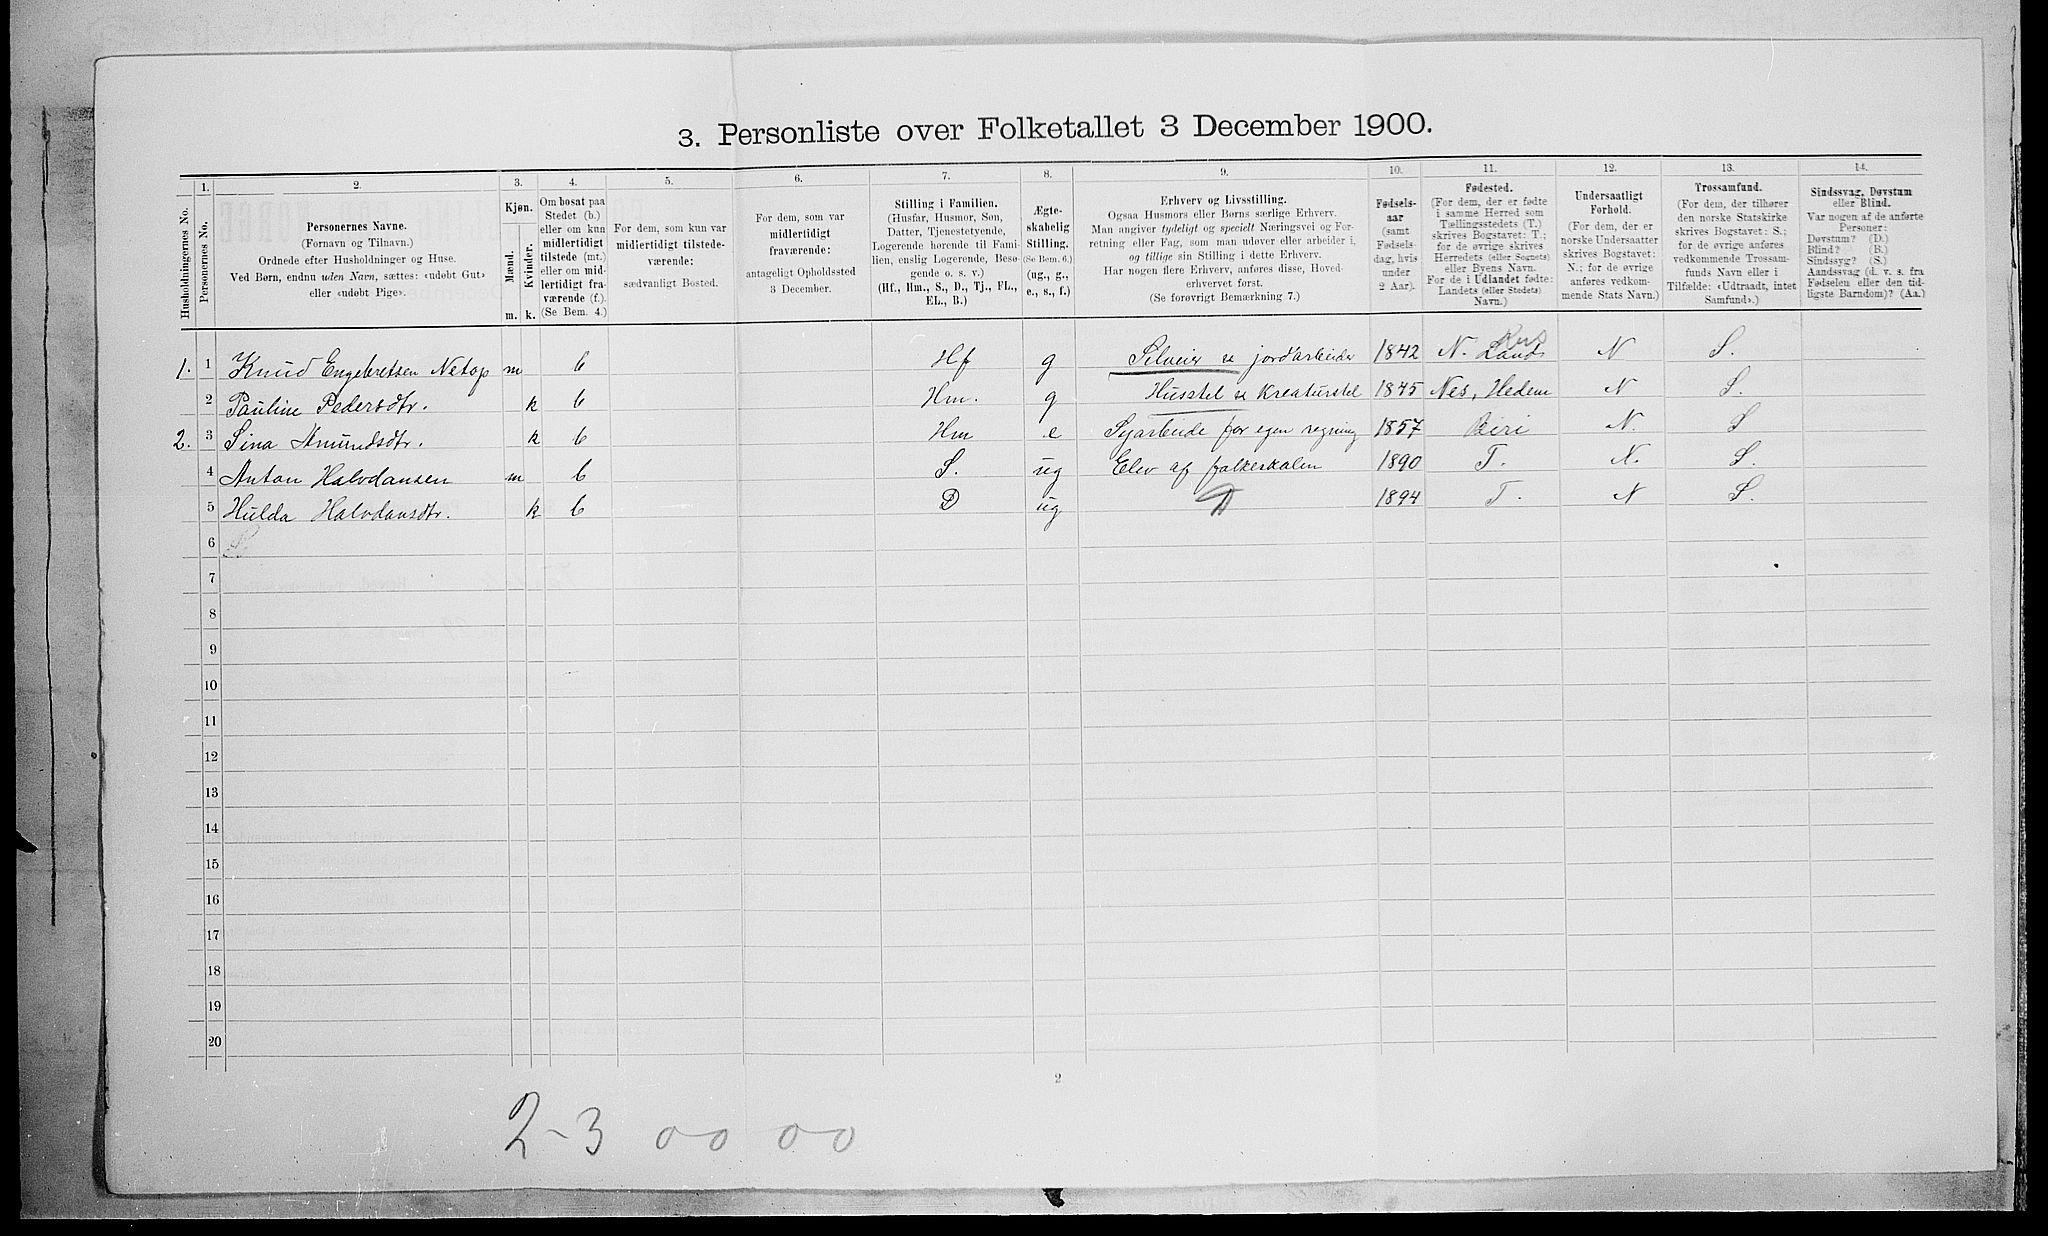 3. Personliste over Folketallet 3 December 1900.
Husholdningernes No.
1.
Personernes No.
2.
Personernes Navne.
(Fornavn og Tilnavn.)
Ordnede efter Husholdninger og Huse.
Ved Børn, endnu uden Navn, sættes: «udøbt Gut»
eller «udøbt Pige».
3.
Kjøn.
Mænd.
Kvinder.
m. k.
4.
Om bosat paa
Stedet (b.)
eller om kun
midlertidigt
tilstede (mt.)
eller om mid-
lertidigt fra-
værende (f.).
(Se Bem. 4.)
5.
For dem, som kun var
midlertidigt tilstede-
værende:
sædvanligt Bosted.
6.
For dem, som var
midlertidigt
fraværende:
antageligt Opholdssted
3 December.
7.
Stilling i Familien.
(Husfar, Husmor, Søn,
Datter, Tjenestetyende,
Logerende hørende til Fami-
lien, enslig Logerende, Besø-
gende o. s. v.)
(Hf., Hm., S., D., Tj., FL.,
EL., B.)
8.
Ægte-
skabelig
Stilling.
(Se Bem. 6.)
(ug., g.,
e., s., f.)
9.
Erhverv og Livsstilling.
Ogsaa Husmors eller Børns særlige Erhverv.
Man angiver tydeligt og specielt Næringsvei og For-
retning eller Fag, som man udøver eller arbeider i,
og tillige sin Stilling i dette Erhverv.
Har nogen flere Erhverv, anføres disse, Hoved-
erhvervet først.
(Se forøvrigt Bemærkning 7.)
10.
Fødsels-
aar
(samt
Fødsels-
dag, hvis
under
2 Aar).
11.
Fødested.
(For dem, der er fødte
i samme Herred som
Tællingsstedets (T.)
skrives Bogstavet: T.;
for de øvrige skrives
Herredets (eller Sognets)
eller Byens Navn.
For de i Udlandet fødte:
Landets (eller Stedets)
Navn.)
12.
Undersaatligt
Forhold.
(For dem, der er
norske Undersaatter
skrives Bogstavet:
N.; for de øvrige
anføres vedkom-
mende Stats Navn.)
13.
Trossamfund.
(For dem, der tilhører
den norske Statskirke
skrives Bogstavet: S.;
for de øvrige anføres
vedkommende Trossam-
funds Navn eller i
Tilfælde: «Udtraadt, intet
Samfund».)
14.
Sindssvag, Døvstum
eller Blind.
Var nogen af de anførte
Personer:
Døvstum? (D.)
Blind? (B.)
Sindssyg? (S.)
Aandssvag (d. v. s. fra
Fødselen eller den tid-
ligste Barndom)? (Aa.)
1. 1 Knud Engebretsen Netop m b Hf g Selveier jordarbeider 1842 N. Land N S.
2 Pauline Pedersdtr. k b Hm. g Husstel Kreaturstel 1845 Nes, Hedem N S.
2. 3 Sina Amundsdtr. k b Hm e Syarbeide for egen regning 1857 Biri N. S
4 Anton Halvdansen m b S. ug Elev af folkeskolen 1890 T. N. S.
5 Hulda Halvdansdtr. k b D ug 1894 T. N S.
6
7
8
9
10
11
12
13
14
15
16
17
18
19
20
2
2-3 00 00